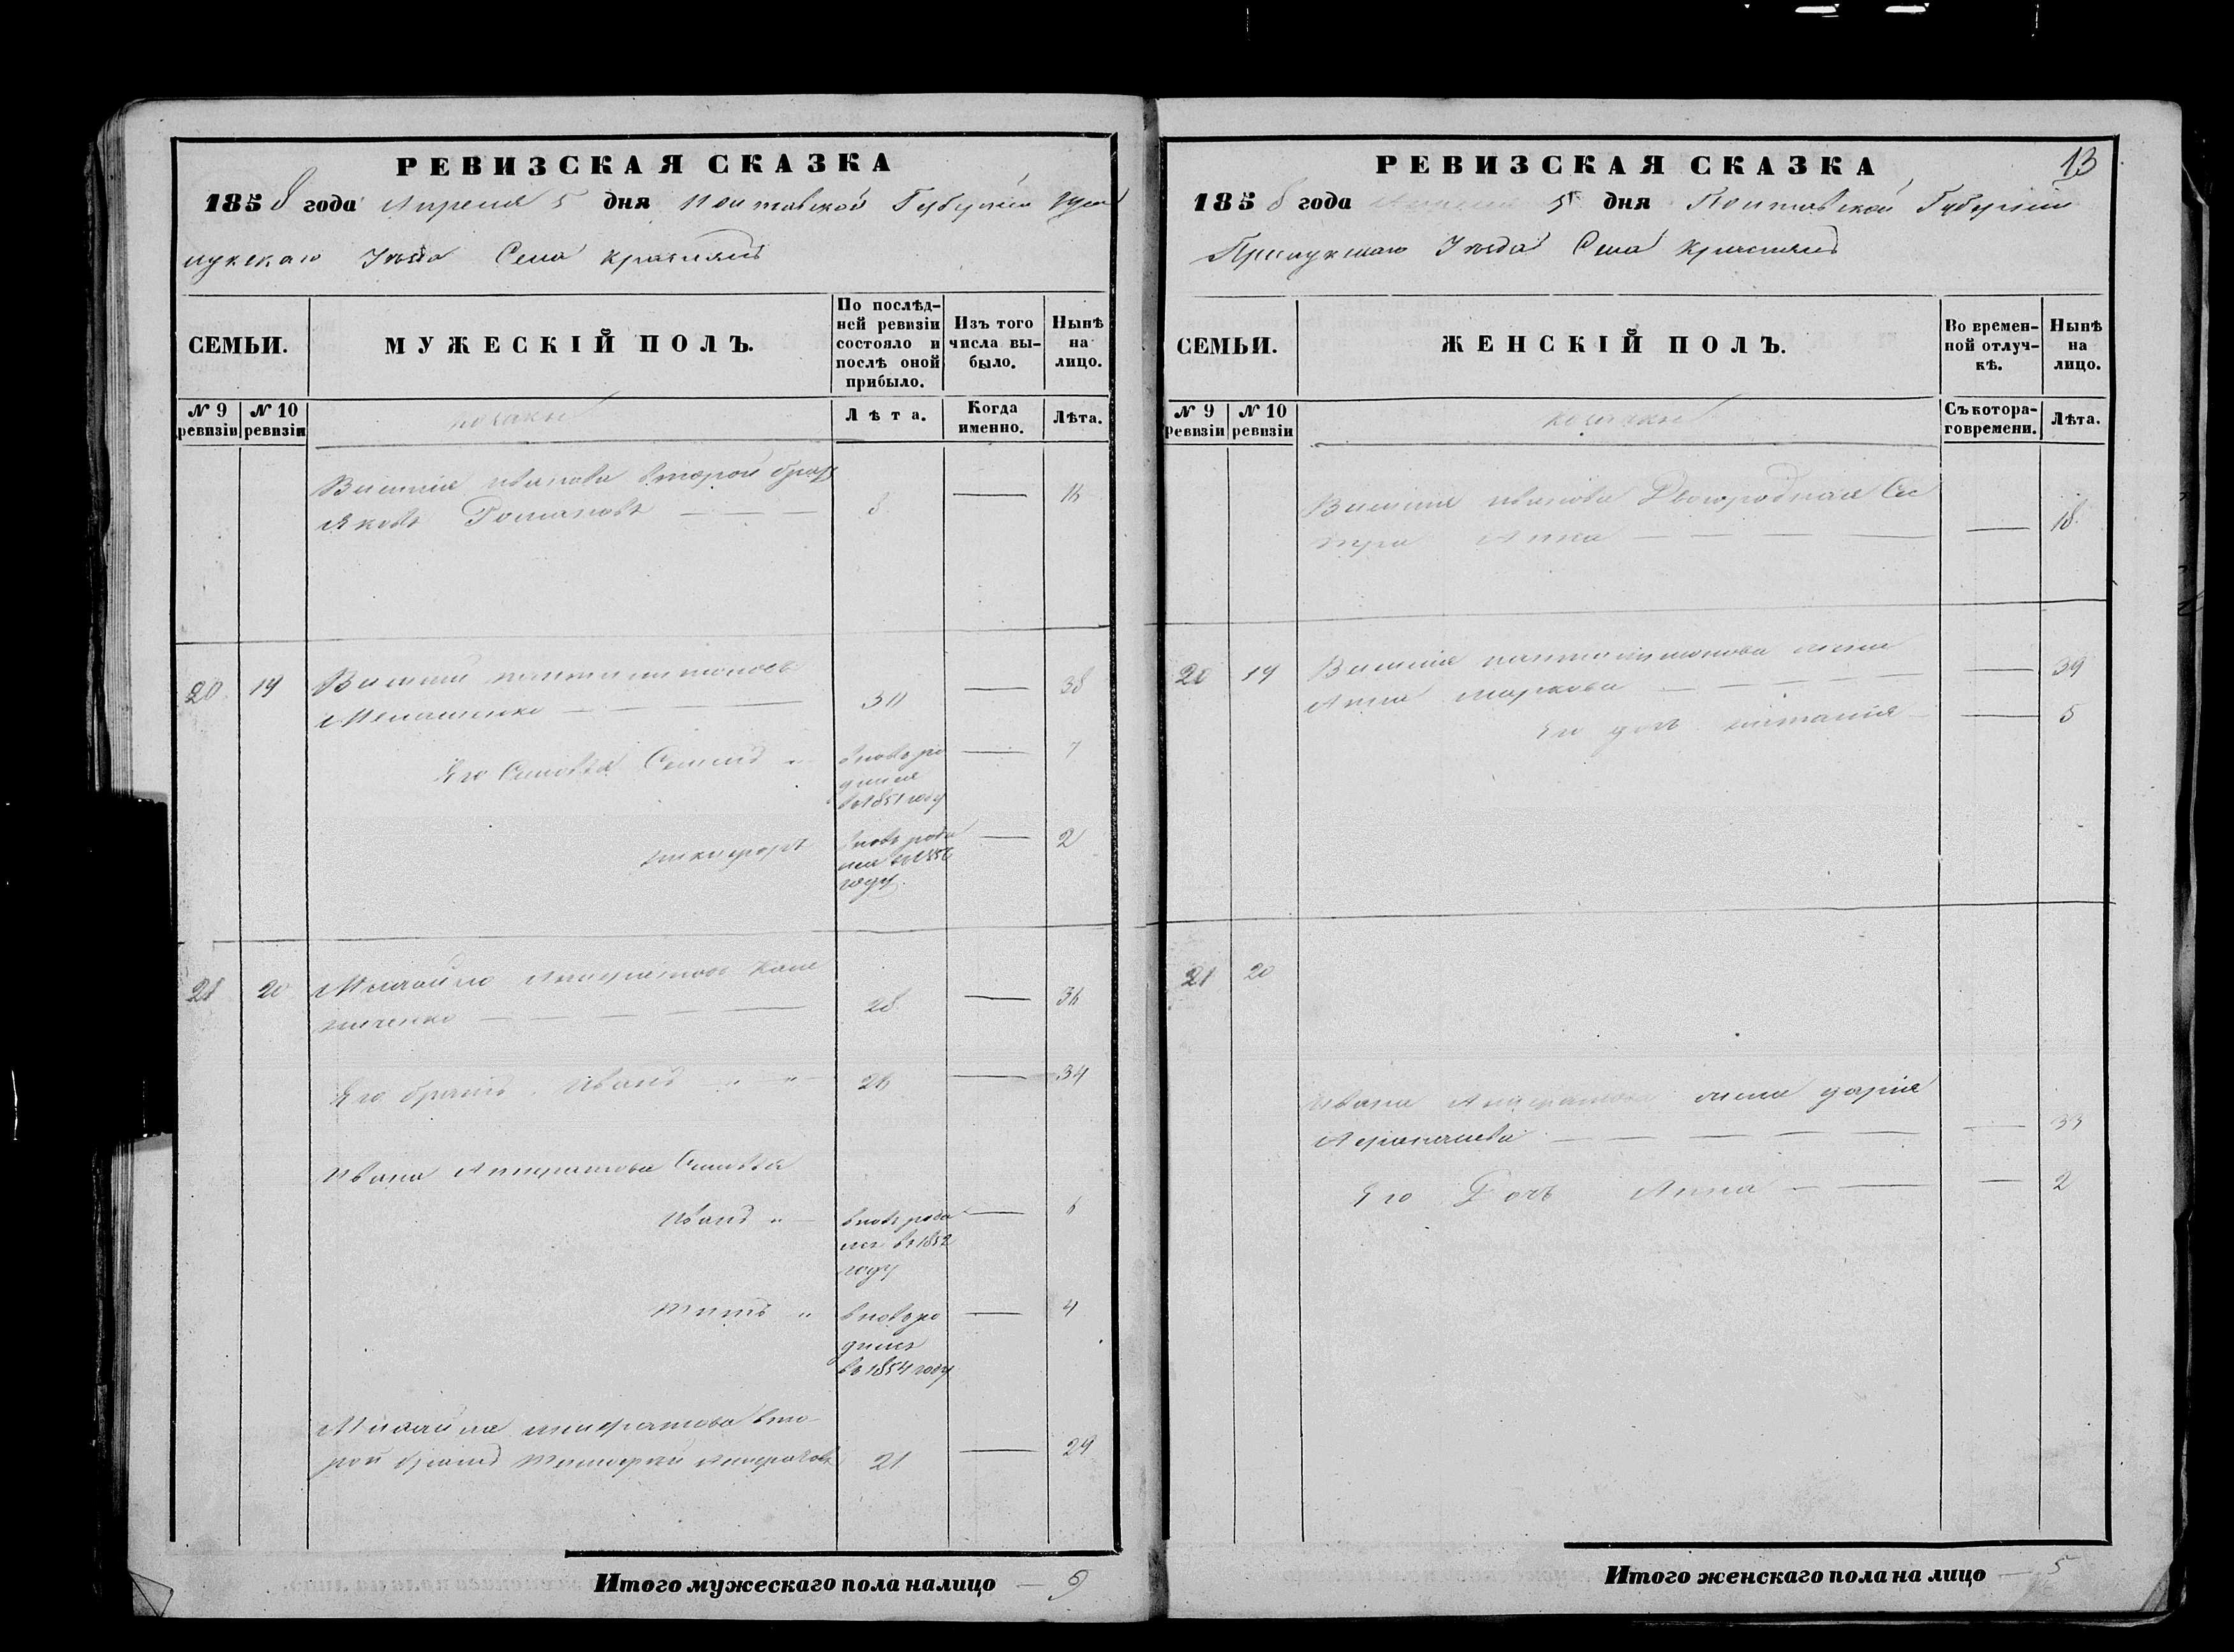 РЕВИЗСКАЯ СКАЗКА
1858 года Апреля 5 дня Полтавской Губерніи При
лукскаго Уезда Села
СЕМЬИ.
МУЖЕСКІЙ ПОЛЪ.
По послѣд-
ней ревизіи
состояло и
послѣ оной
прибыло.
Изъ того
числа вы-
было.
Нынѣ
на
лицо.
№ 9
ревизіи
№ 10
ревизіи
козаки
Лѣта.
Когда
именно.
Лѣта.
Василія Иванова второй братъ
Яковъ Романовъ 8 — 16
20 19 Василий
30 — 38
Его Сыновья Семенъ вновь ро — 7
дился
въ 1851 году
Никифоръ вновь роди — 2
лся въ 1856
году.
21 20 Михайло
28 — 36
Его братъ Иванъ 26 — 34
Ивана Сыновья
Иванъ вновь роди — 6
лся въ 1852
году
Титъ вновь ро — 4
дился
въ 1854 году
Михайла вто-
рой братъ Тимофей 21 — 29
Итого мужескаго пола налицо — 9
РЕВИЗСКАЯ СКАЗКА
13
1858 года Апреля 5 дня Полтавской Губерніи
Прилукскаго Уезда Села
СЕМЬИ.
ЖЕНСКІЙ ПОЛЪ.
Во времен-
ной отлуч-
кѣ.
Нынѣ
на
лицо.
№ 9
ревизіи
№ 10
ревизіи
козаки
Съ котора-
го времени.
Лѣта.
Василія Иванова Двоюродная Се
стра Анна — 18
20 19 Василія жена
Анна Маркова — 39
Его дочь — 5
21 20
Ивана жена Дарія
— 33
Его Дочь Анна — 2
Итого женскаго пола на лицо — 5